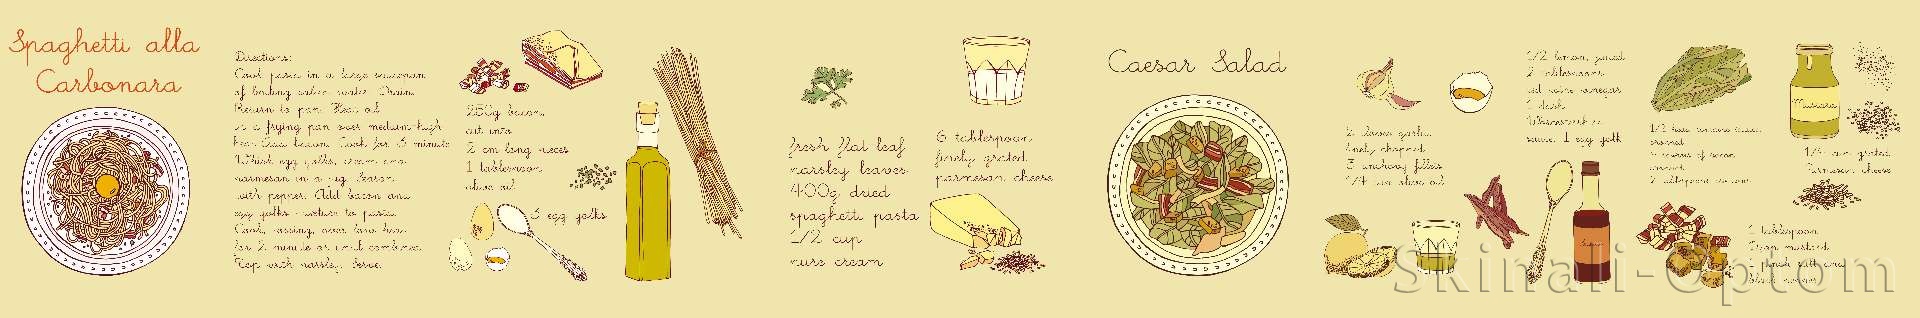 Spaghetti alla
Carbonara
Directions:
Cook pasta in a large saucepan
of boiling water. Drain.
Return to pan. Heat oil
in a frying pan over medium-high
heat. Add bacon. Cook for 3 minute
Whisk egg yolks, cream and
parmesan in a jug. Season
with pepper. Add bacon and
egg yolks
return to pasta
Cook, tossing, over low heat
for 2 minute or until combined
Top with parsley. Serve.
250g bacon,
cut into
2 cm long pieces
1 tablespoon
olive oil
3 egg yolks
fresh flat leaf
parsley leaves
400g dried
spaghetti pasta
1/2 cup
pure cream
6 tablespoon
finely grated
parmesan cheese
Caesar Salad
2 cloves garlic
finely chopped
3 anchovy fillets
1/4 cup olive oil
1/2 lemon, juiced
2 tablespoons
red wine vinegar
1 dash
Worcestershire
sauce, 1 egg yolk
1/2 head romaine lettuce
Mustard
1/4 cup grated
parmesan cheese
1 tablespoon
Dijon mustard
1 pinch salt and
black pepper
Skinali-Optom